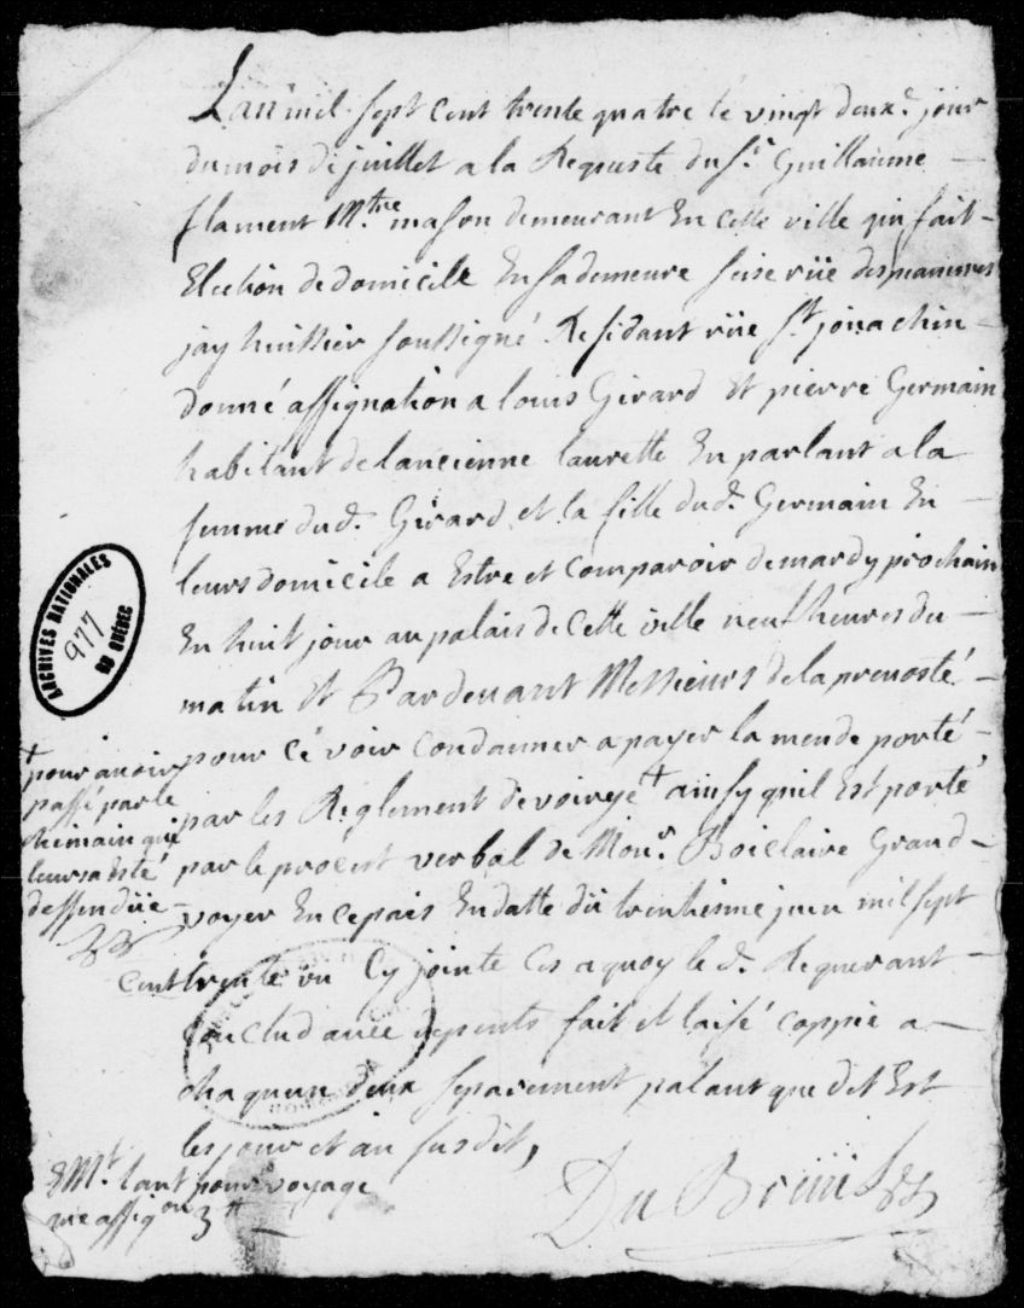 Lan mil sept cent trente quatre le vingt deuxe. jour
du mois de juillet a la Requeste du Sr. Guillaume
flament Mtre. mason demeurant En cette ville qui fait
Election de domicile En sa demeure sise rüe des
jay huissier soussigné Residant rüe St. jouachin
donné assignation a louis Girard et pierre Germain
habitant de lancienne laurette En parlant a la
femme dud. Girard et la fille dud. Germain En
leurs domicile a Estre et Comparoir de mardy prochain
En huit jour au palais de Cette ville neuf heures du
matin et Pardevant Messieurs de la prevosté
pour cé voir Condanner a payer la mende porté
par les Reglement de voireyé + ainsy quil Est porté
par le procest verbal de Monr. Boiclaire Grand
voyer En ce pais En datte dü trentiesme juin mil sept
cent trente un Cy jointe Ces a quoy le d. Requerant
Conclud avec depents fait et laisé coppie a
chaquun deux separement palant que dit Est
les jour et an susdit,
Du Breüil
+
pour avoir
passé par le
chemain qui
leurs a Esté
deffendüe
ARCHIVES NATIONALES
977
DU QUÉBEC
EMt. tant pour voyage
que assigon 3 tt